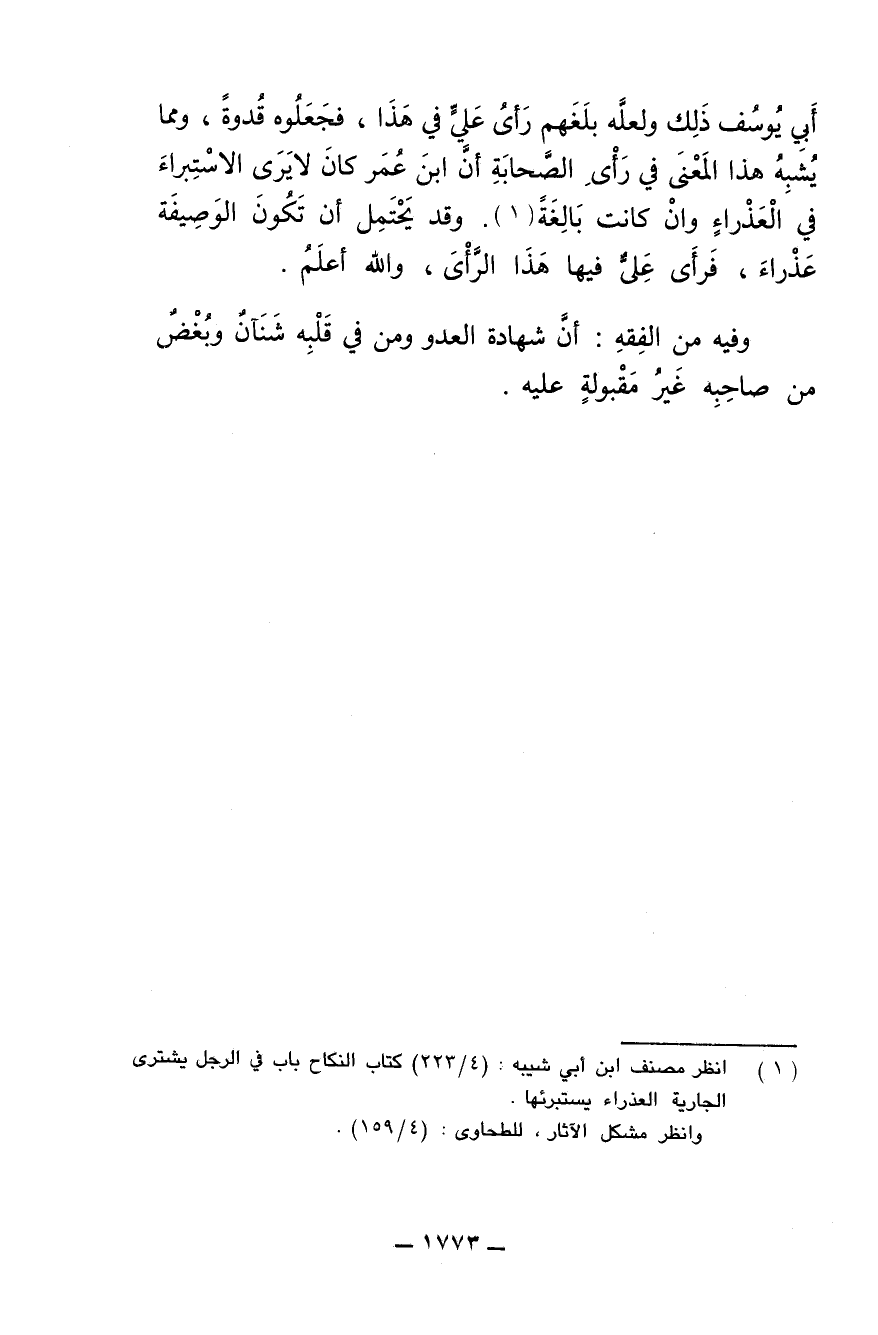 أَبي يُوسُف ذَلِك ولعلَّه بلَغَهم رَأىُ عَليٍّ في هَذَا ، فجَعَلُوه قُدوةً ، ومما
يُشبِهُ هذا المَعْنَى في رَأْىِ الصَّحابَةِ أنَّ ابنَ عُمَر كانَ لايَرَى الاسْتِبراءَ
في الْعَذْراءِ وانْ كانت بَالِغَةً (١). وقد يَحْتَمِل أن تَكُونَ الوَصِيفَة
عَذْراءَ ، فَرأَى عَلِيٌّ فيها هَذَا الرَّأْىَ ، والله أعلَمُ .
وفيه من الفِقهِ : أنَّ شهادة العدو ومن في قَلْبِه شَنَآنٌ وبُغْضٌ
من صاحِبِه غَيرُ مَقْبولةٍ عليه .
(١) انظر مصنف ابن أبي شيبه : (٢٢٣/٤) كتاب النكاح باب في الرجل يشترى
الجارية العذراء يستبرئها .
وانظر مشكل الآثار ، للطحاوى : (١٥٩/٤) .
– ١٧٧٣ –